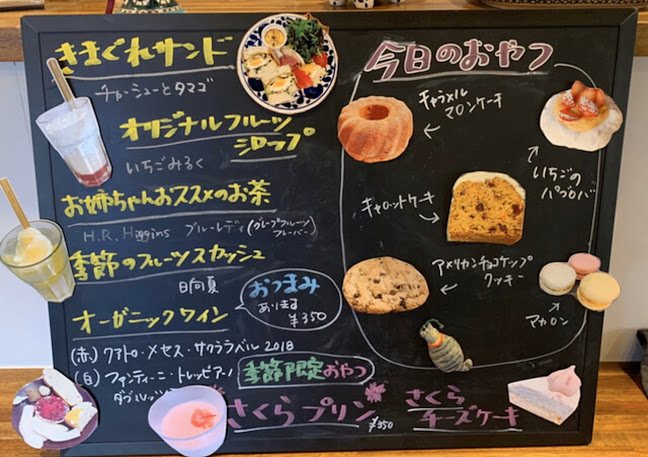 きまぐれサンド
チャーシューとタマゴ
オリジナルフルーツ
シロップ
いちごみるく
お姉ちゃんおススメのお茶
H.R. Higgins ブルーレディ (グレープフルーツ
フレーバー)
季節のフルーツスカッシュ
日向夏
おつまみ
あります
¥350
オーガニックワイン
(赤) クアトロ・メセス・サクララベル 2018
(白) ファンティーニ・トレッビアーノ
ダブルッ
今日のおやつ
キャラメル
マロンケーキ
いちごの
パブロバ
キャロットケーキ
アメリカンチョコチップ
クッキー
マカロン
季節限定おやつ
さくらプリン
¥350
さくら
チーズケーキ